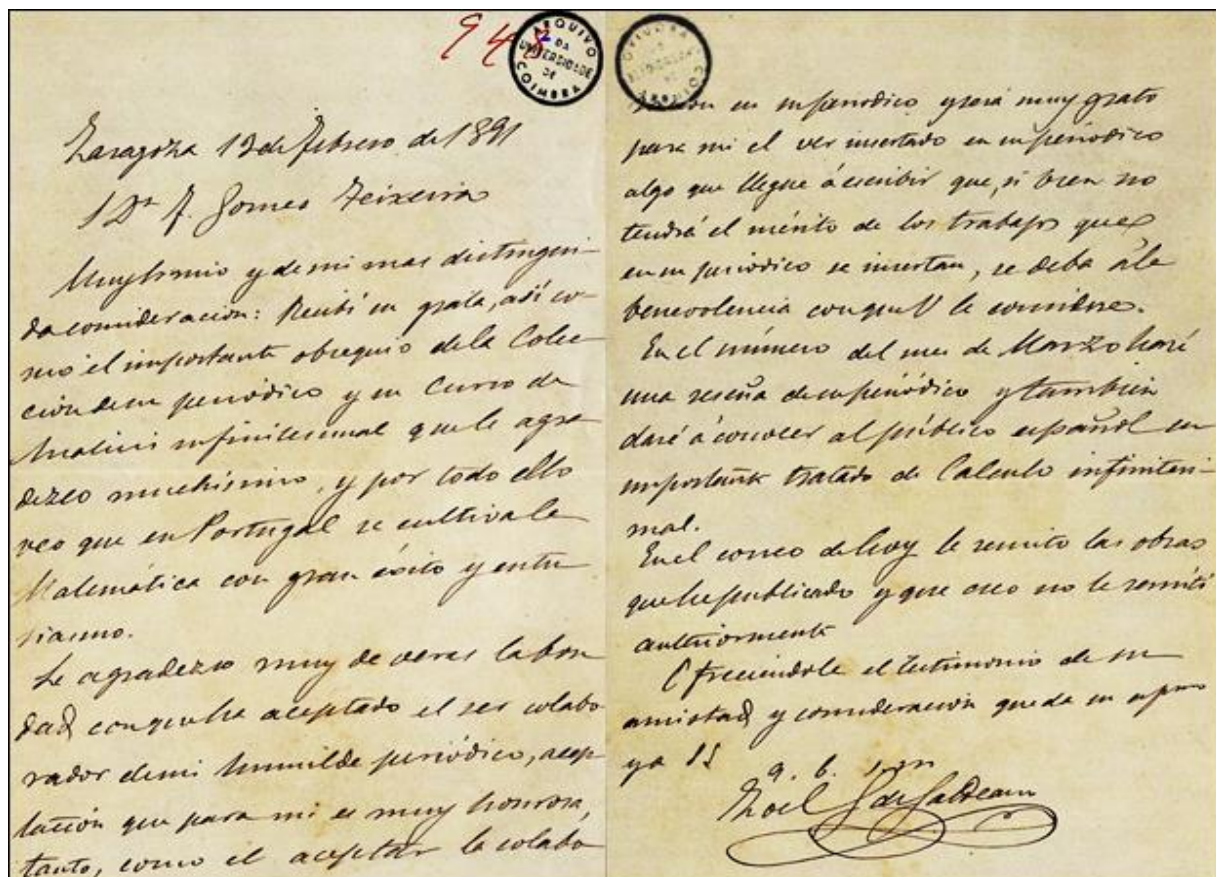 948
ARQUIVO DA UNIVERSIDADE DE COIMBRA
Zaragoza 13 de Febrero de 1891
Sr Dn F. Gomes Teixeira
Muy Sr mio y de mi mas distingui-
da consideración: Recibí su grata, así co-
mo el importante obsequio de la Colec
ción de su periódico y su Curso de
Analisis infinitesimal que le agra
dezco muchísimo, y por todo ello
veo que en Portugal se cultiva la
Matemática con gran éxito y entu
siasmo.
Le agradezco muy de veras la bon
dad con que ha aceptado el ser colabo
rador de mi humilde periódico, acep
tación que para mi es muy honrosa,
tanto, como el aceptar la colabo
ARQUIVO DA UNIVERSIDADE DE COIMBRA
ración en su periodico y será muy grato
para mi el ver insertado en su periódico
algo que llegue á escribir que, si bien no
tendrá el mérito de los trabajos que
en su periodico se insertan, se deba á la
benevolencia con que V le considere.
En el número del mes de Marzo haré
una reseña de su periódico y tambien
daré á conocer al público español su
importante tratado de Calculo infinitesi-
mal.
En el correo de hoy le remito las obras
que he publicado y que creo no le remití
anteriormente
Ofreciendole el testimonio de su
amistad y consideración queda su
ya SS
q. b. s. m
Zoel G de Galdeano